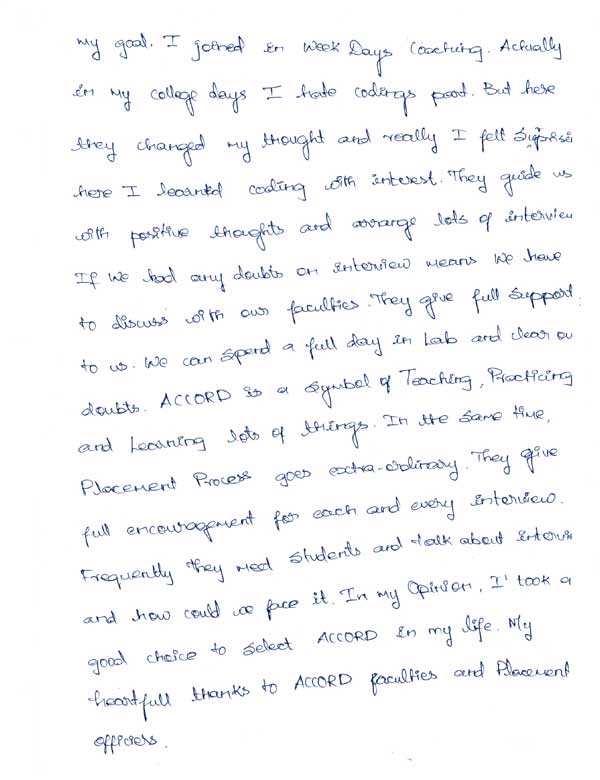 my goal. I joined in Week Days Coaching. Actually
in my college days I hate codings part. But here
they changed my thought and really I felt
here I learntd coading with interest. They guide us
with positive thoughts and arrange lots of interview
If we had any doubts on interview means we have
to discuss with our faculties. They give full support
to us. We can spend a full day in Lab and clear ou
doubts. ACCORD is a symbol of Teaching, Practicing
and Learning lots of things. In the same time,
Placement Process goes extra-ordinary. They give
full encouragement for each and every interview.
Frequently they meet students and talk about intervi
and how could we face it. In my Opinion, I' took a
good choice to select ACCORD in my life. My
heartfull thanks to ACCORD faculties and Placement
officiers.